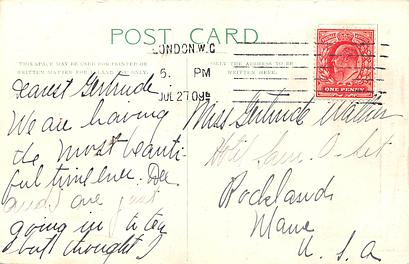 POST CARD
THIS SPACE MAY BE USED FOR PRINTED OR
WRITTEN MATTER FOR INLAND ONLY.
ONLY THE ADDRESS TO BE
WRITTEN HERE.
LONDON. W.C
5. PM
JUL 27 09
ONE PENNY
Dearest Gertrude
We are having
the most beauti-
ful time ever. Dee
and I are just
going in to tea
& but thought I
Miss Gertrude
Hotel
Rockland
Maine
U. S. A